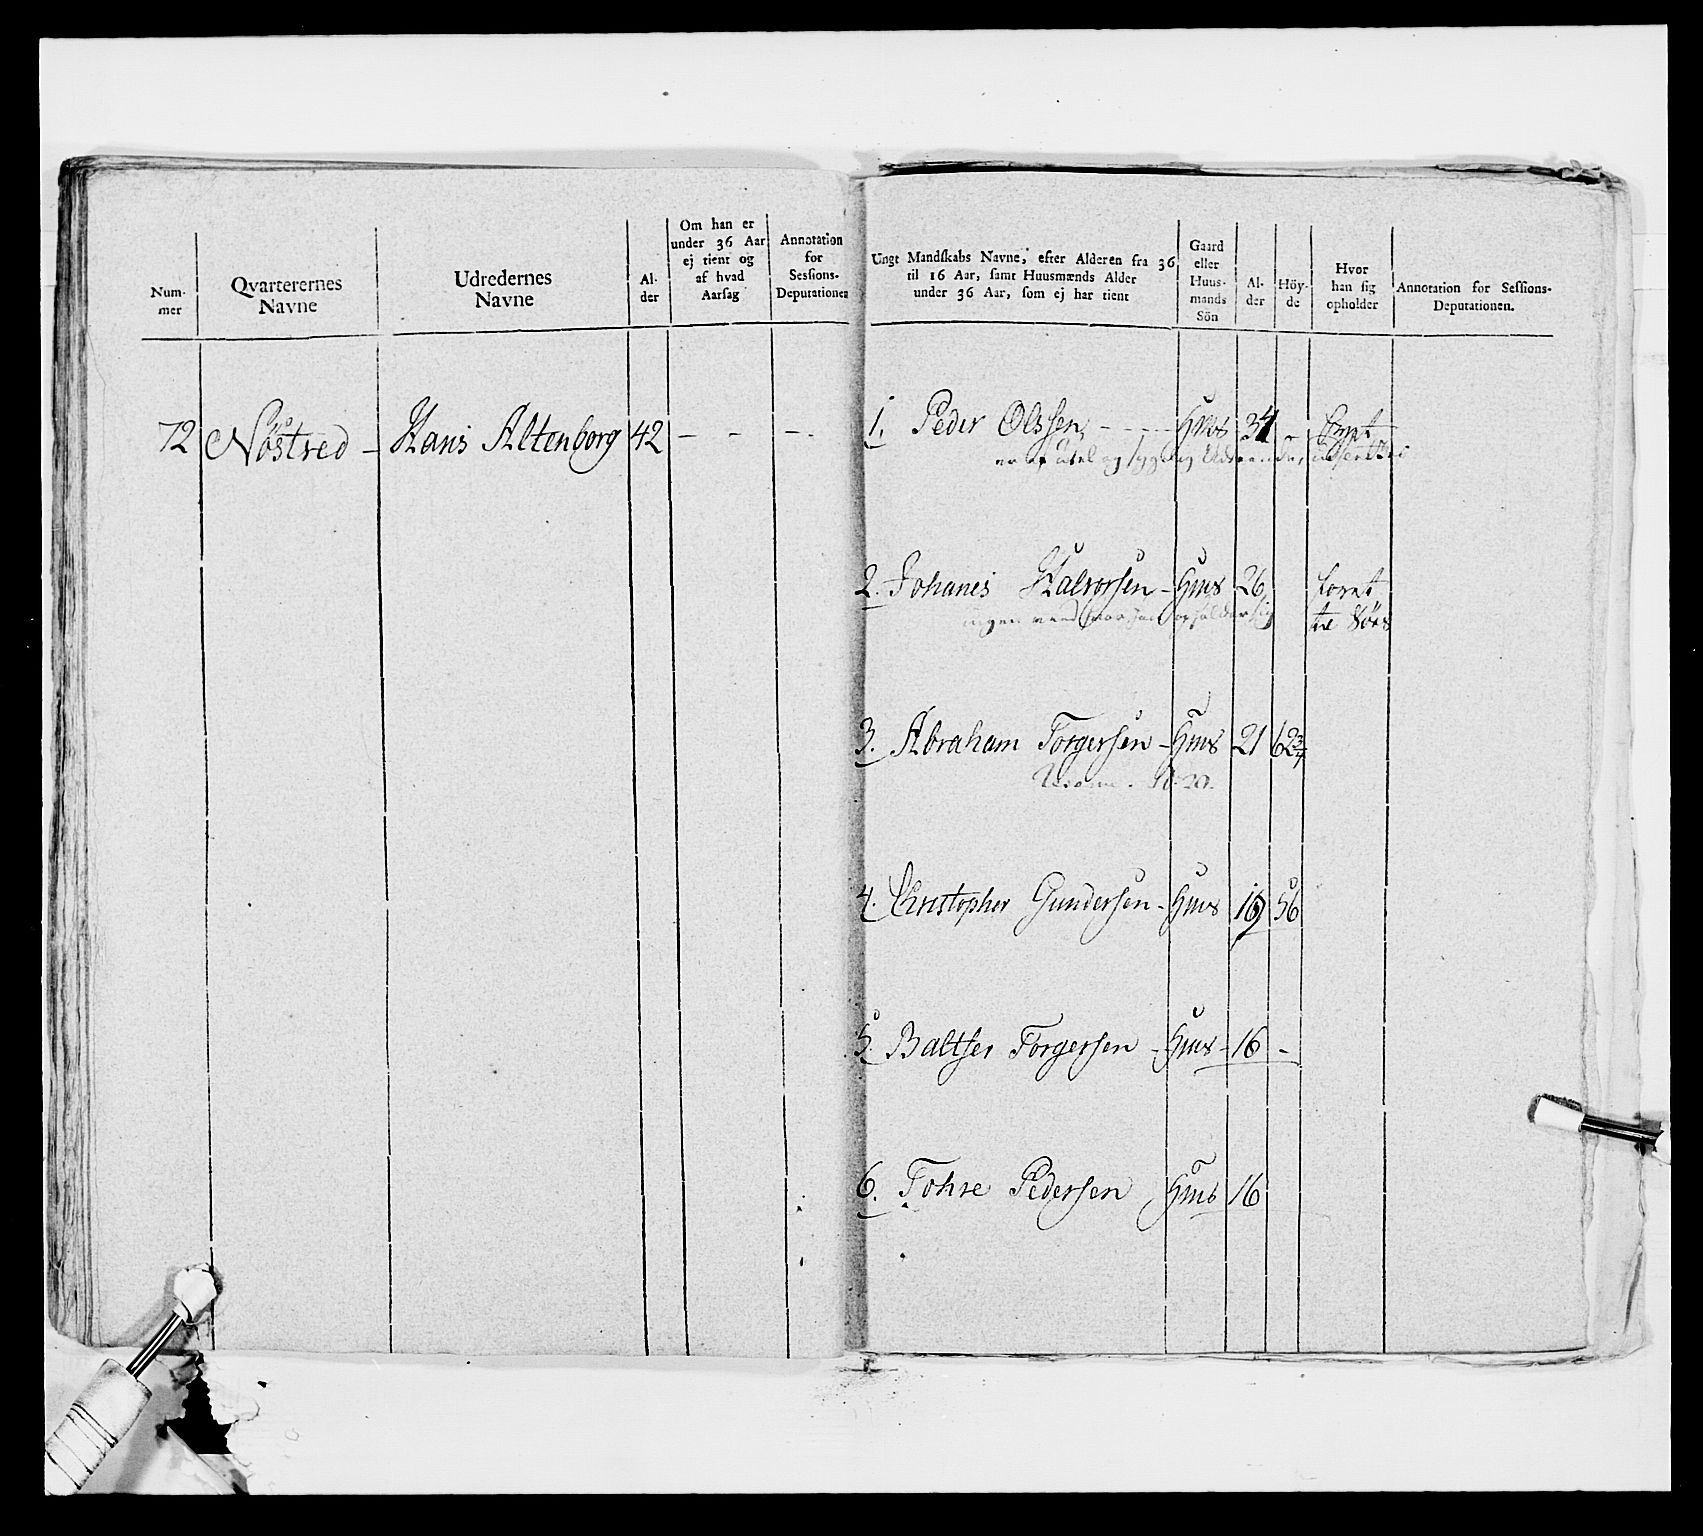 Num-
mer
Qvarterernes
Navne
Udredernes
Navne
Al-
der
Om han er
under 36 Aar
ej tient og
af hvad
Aarsag
Annotation
for
Sessions-
Deputationen
72 Nöstred - Hans Altenborg 42 - - - -
Ungt Mandskabs Navne, efter Alderen fra 36
til 16 Aar, samt Huusmænds Alder
under 36 Aar, som ej har tient
Gaard
eller
Huus-
mands
Sön
Al-
der
Höy-
de
Hvor
han sig
opholder
Annotation for Sessions-
Deputationen.
1. Peder Olssen - Huus 34 -
2. Johanes Halvorsen - Huus 26
3. Abraham Torgersen - Huus 21 62 3/4
4. Christopher Gundersen - Huus 19 56
5. Baltser Torgersen - Huus - 16 -
6. Tohre Pedersen Huus 16